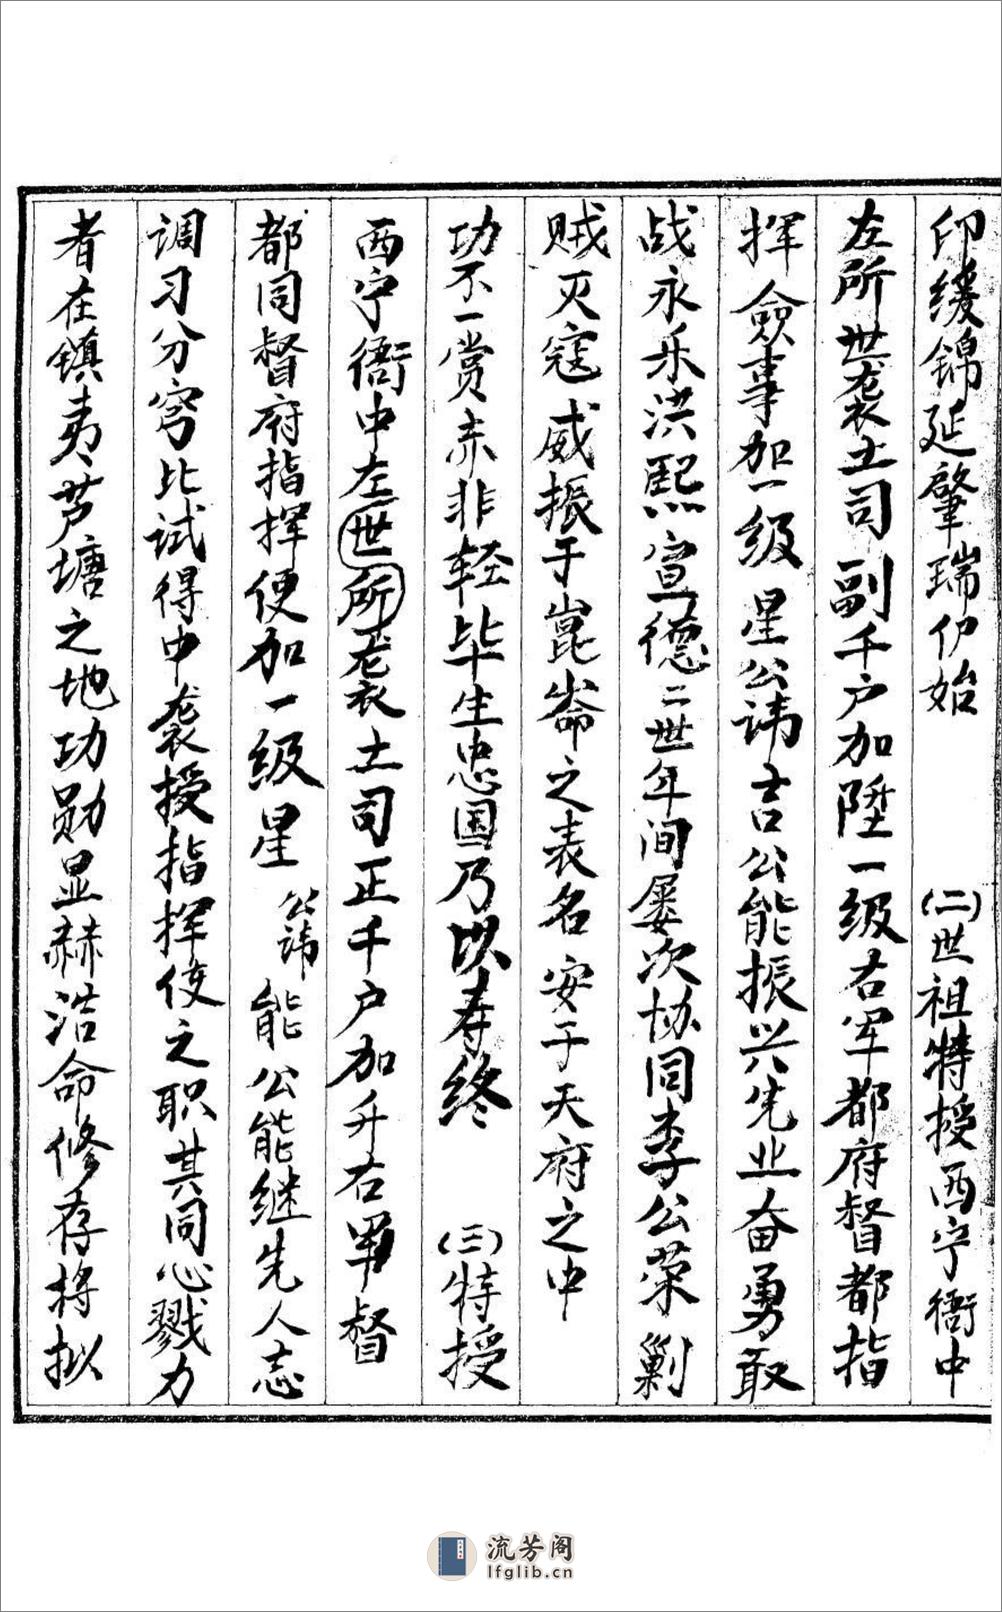 印绶锦延肇瑞伊始 (二)世祖特授西宁衙中
左所世袭土司副千户加陞一级右军都府督都指
挥佥事加一级星公讳言公能振兴先业奋勇敢
战永乐洪熙宣德二世年间屡次协同李公荣剿
贼灭寇威振于崑崙之表名安于天府之中
功不一赏亦非轻毕生忠国乃以寿终 (三)特授
西宁衙中左世所袭土司正千户加升右军督
都同督府指挥使加一级星公讳能公能继先人志
调习分穹比试得中袭授指挥使之职其同心戮力
者在镇夷芦塘之地功勋显赫浩命修存将拟
流芳阁
lfglib.cn